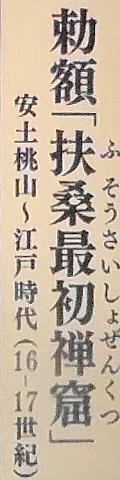 勅額「扶桑最初禅窟」
ふそうさいしょぜんくつ
安土桃山～江戸時代（16-17世紀）